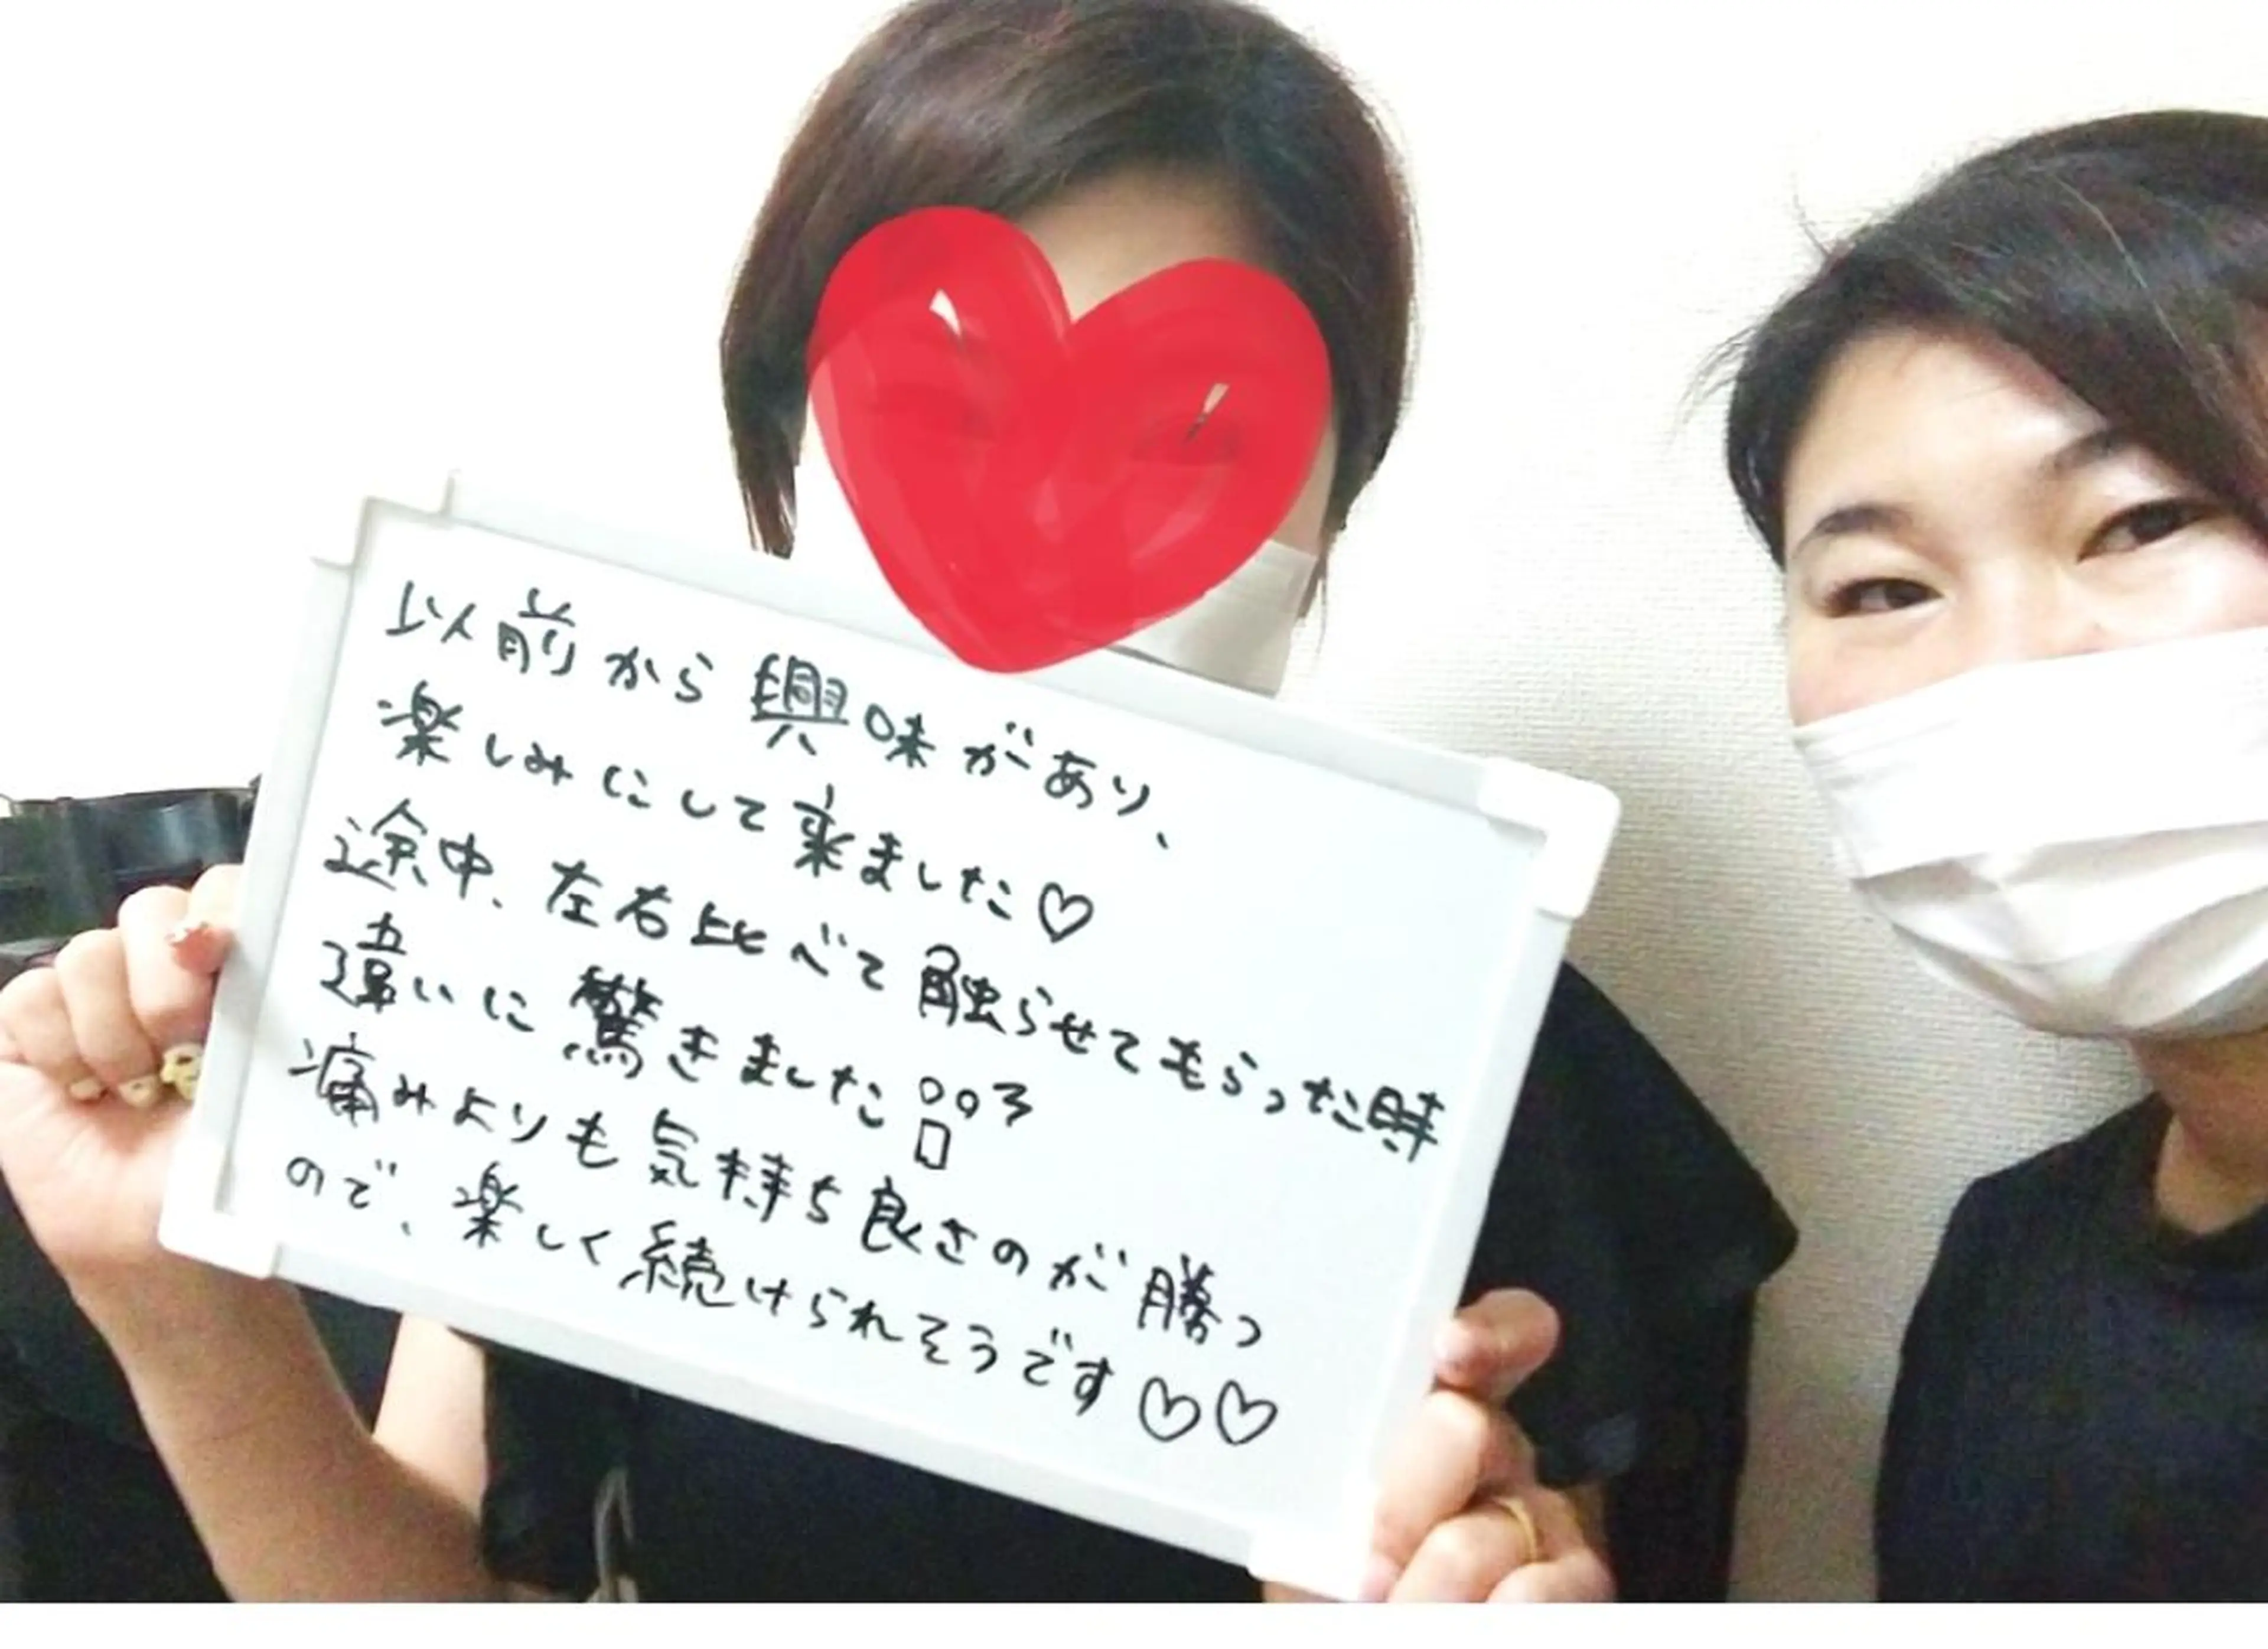 以前から興味があり、
楽しみにして来ました♡
途中、左右比べて触らせてもらった時
違いに驚きました
痛みよりも気持ち良さのが勝つ
ので、楽しく続けられそうです♡♡